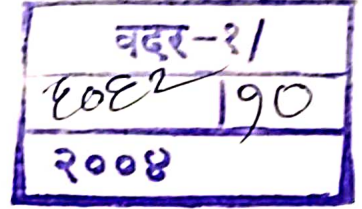 वदर-१/
६०६२/१०
२००४